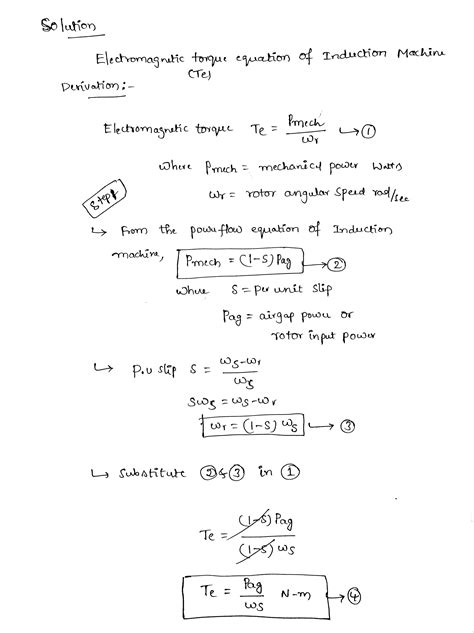 Solution
Electromagnetic torque equation of Induction Machine
(Te)
Derivation:-
Electromagnetic torque Te = Pmech/ωr → ①
where Pmech = mechanical power Watts
ωr = rotor angular speed rad/sec
Step1
↳ From the powerflow equation of Induction
machine, Pmech = (1-S) Pag → ②
where S = per unit slip
Pag = airgap power or
rotor input power
↳ p.u slip S = (ωs-ωr)/ωs
Sωs = ωs-ωr
ωr = (1-S) ωs → ③
↳ Substitute ② & ③ in ①
Te = (1-S) Pag / (1-S) ωs
Te = Pag/ωs N-m → ④